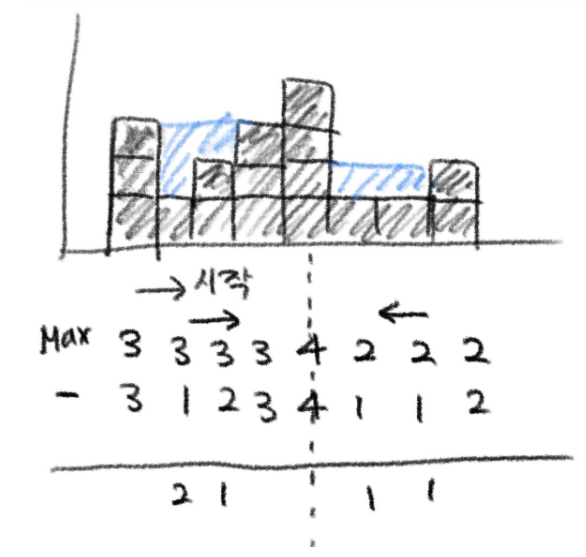 → 시작
→ ←
Max 3 3 3 3 4 2 2 2
- 3 1 2 3 4 1 1 2
2 1 1 1